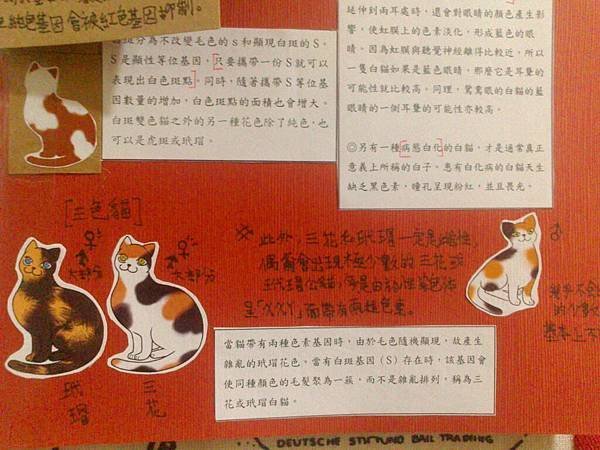 純色基因會被紅色基因抑制。
白斑分為不改變毛色的s和顯現白斑的S。
S是顯性等位基因,只要攜帶一份S就可以
表現出白色斑點。同時,隨著攜帶S等位基
因數量的增加,白色斑點的面積也會增大。
白斑雙色貓之外的另一種花色除了純色,也
可以是虎斑或玳瑁。
延伸到兩耳處時,還會對眼睛的顏色產生影
響,使虹膜上的色素淡化,形成藍色的眼
睛。因為虹膜與聽覺神經離得比較近,所以
一隻白貓如果是藍色眼睛,那麼它是耳聾的
可能性就比較高。同理,鴛鴦眼的白貓的藍
眼睛的一側耳聾的可能性亦較高。
◎另有一種病態白化的白貓,才是通常真正
意義上所稱的白子。患有白化病的白貓天生
缺乏黑色素,瞳孔呈現粉紅,並且畏光。
[三色貓]
♀
大部分
♀
大部分
玳瑁
三花
※ 此外,三花和玳瑁一定是雌性,
偶爾會出現極少數的三花或
玳瑁公貓,
呈「XXY」而帶有兩種色素。
♂
幾乎不
的少數
基本上不
當貓帶有兩種色素基因時,由於毛色隨機顯現,故產生
雜亂的玳瑁花色。當有白斑基因(S)存在時,該基因會
使同種顏色的毛髮聚為一簇,而不是雜亂排列,稱為三
花或玳瑁白貓。
DEUTSCHE
TRADING